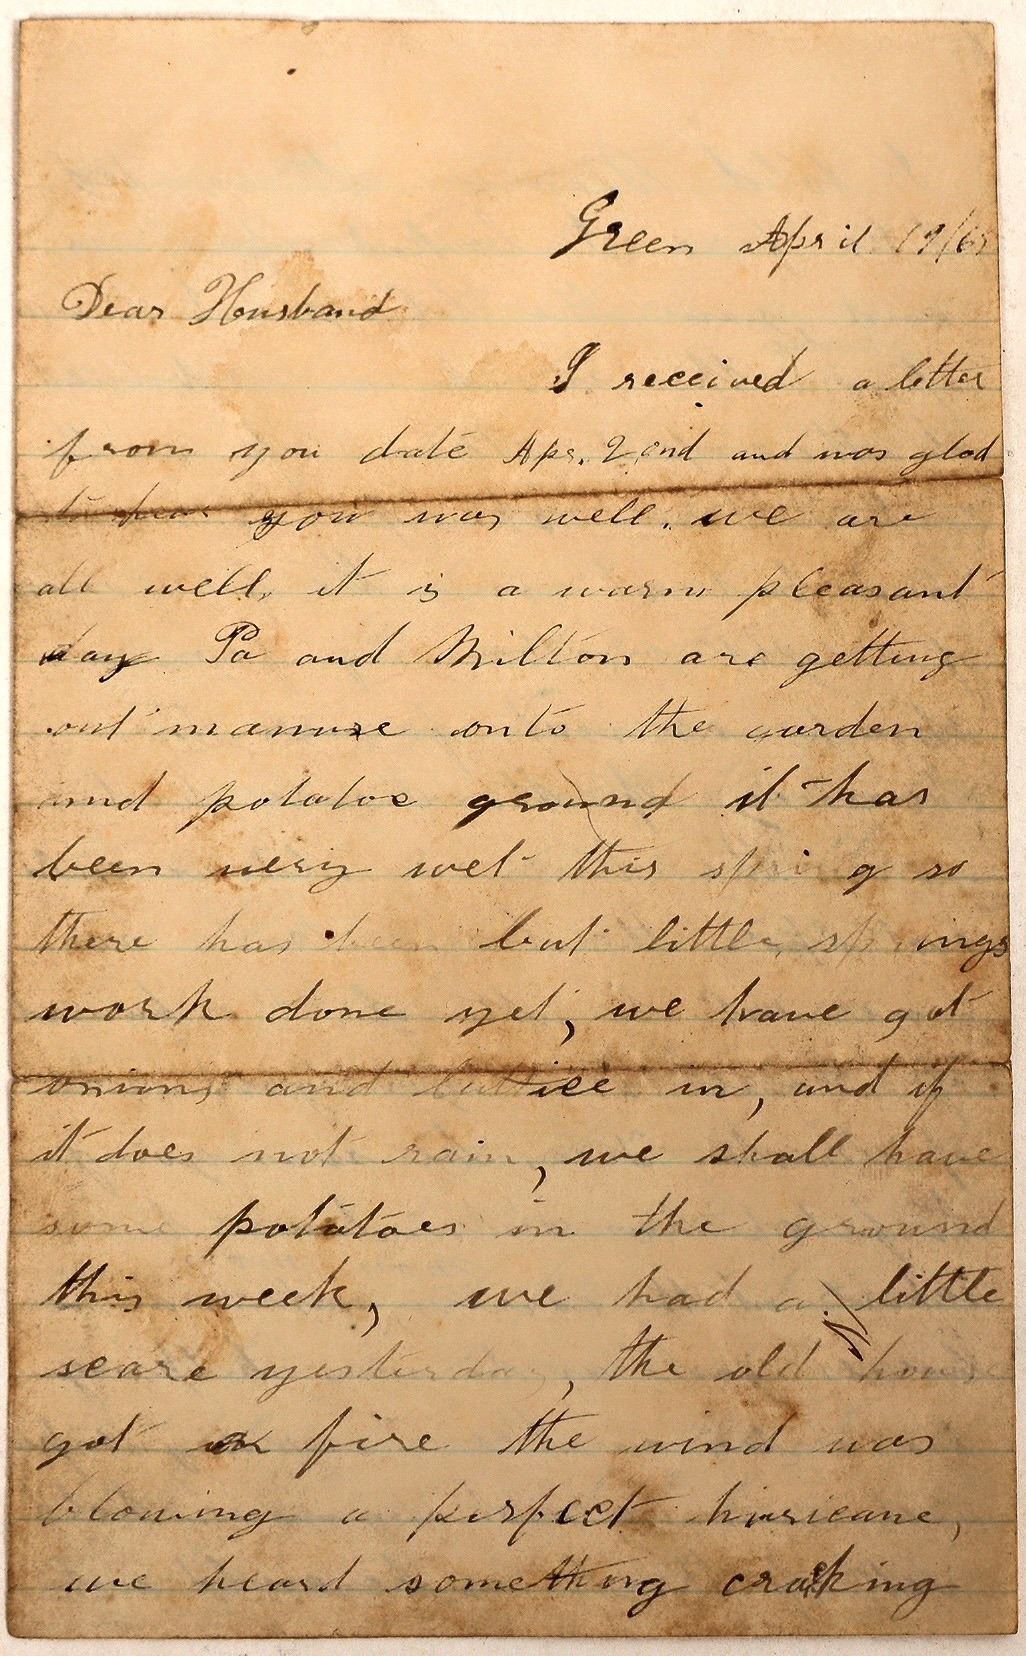 Green April 19/6
Dear Housband
I received a letter
from you date Apr. 2,ond and was glad
to hear you was well. we are
all well, it is a warm pleasant
day Pa and Milton are getting
out manure onto the garden
and potatoe ground it has
been very wet this spring so
there has been but little springs
work done yet, we have got
onions and luttice in, and if
it does not rain, we shall have
some potatoes in the ground
this week, we had a little
scare yesterday, the old house
got on fire the wind was
blowing a perfect huricane,
we heard something cracking